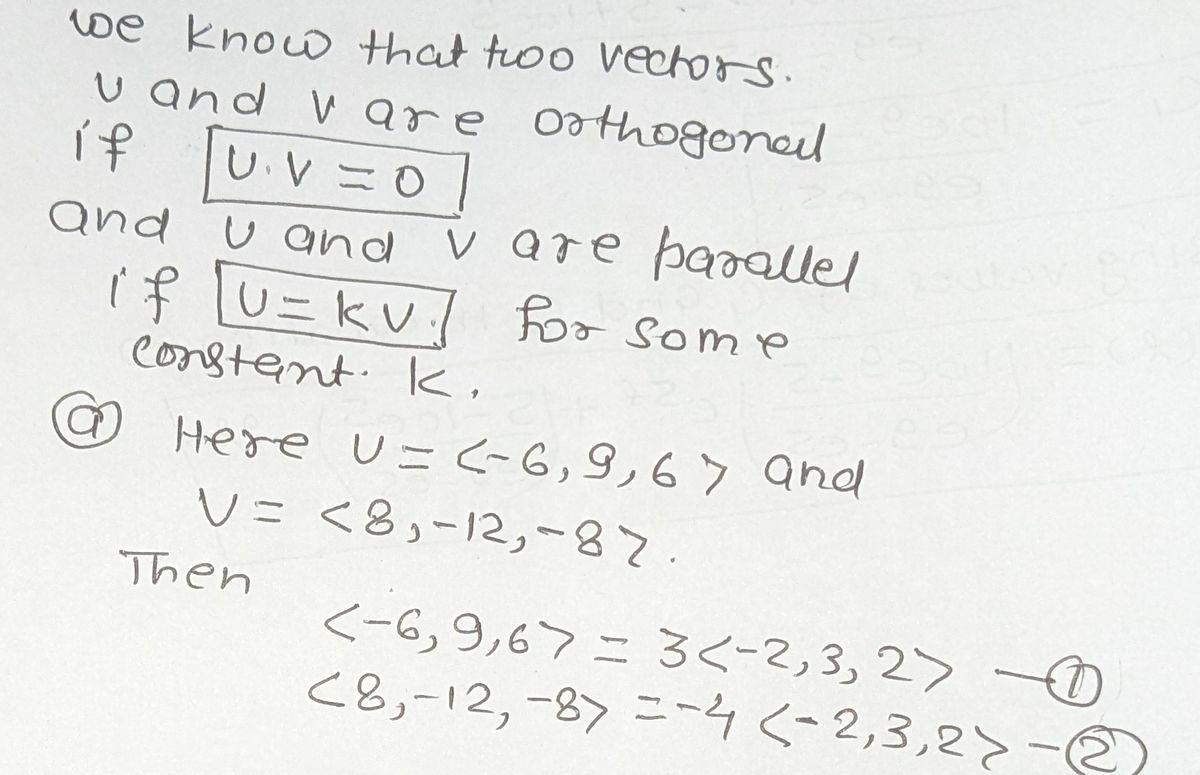 we know that two vectors.
u and v are orthogonal
if U.V = 0
and u and v are parallel
if U = kv. for some
constant. k.
ⓐ Here U = <-6, 9, 6> and
V = <8, -12, -8>.
Then
<-6, 9, 6> = 3<-2, 3, 2> —①
<8, -12, -8> = -4 <-2, 3, 2> —②